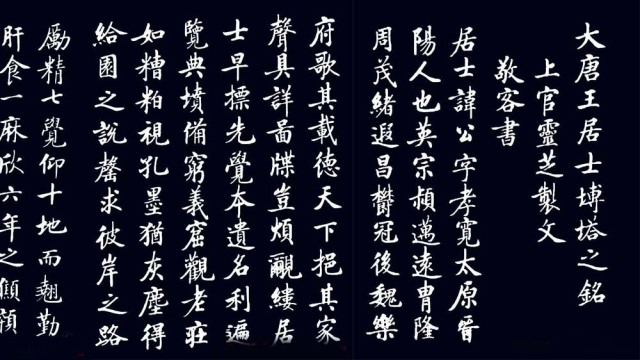 大唐王居士塼塔之銘
上官靈芝製文
敬客書
居士諱公字孝寬太原晉
陽人也英宗穎邁遠冑隆
周茂緒遐昌欝冠後魏樂
府歌其載德天下挹其家
聲具詳啚牒豈煩覼縷居
士早標先覺本遺名利遍
覽典墳備窮義窟觀老莊
如糟粕視孔墨猶灰塵得
給園之說罄求彼岸之路
勵精七覺仰十地而翹勤
肝食一麻欣六年之顦顇